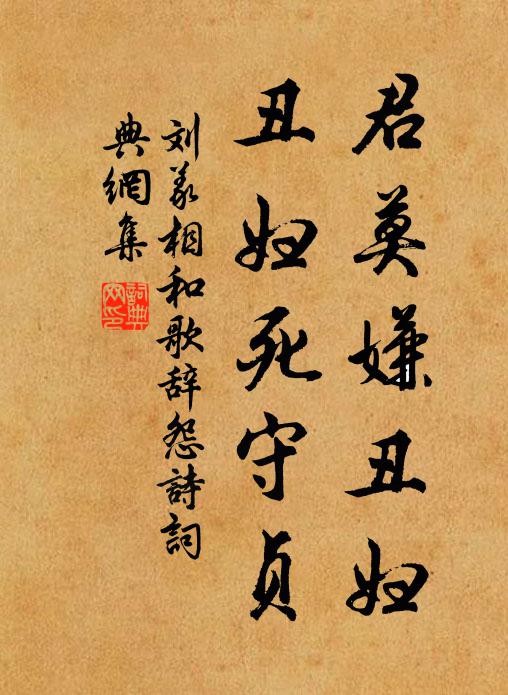 君莫嫌丑妇
丑妇死守贞
刘义相和歌辞怨詩詞
典網集
詞典網印